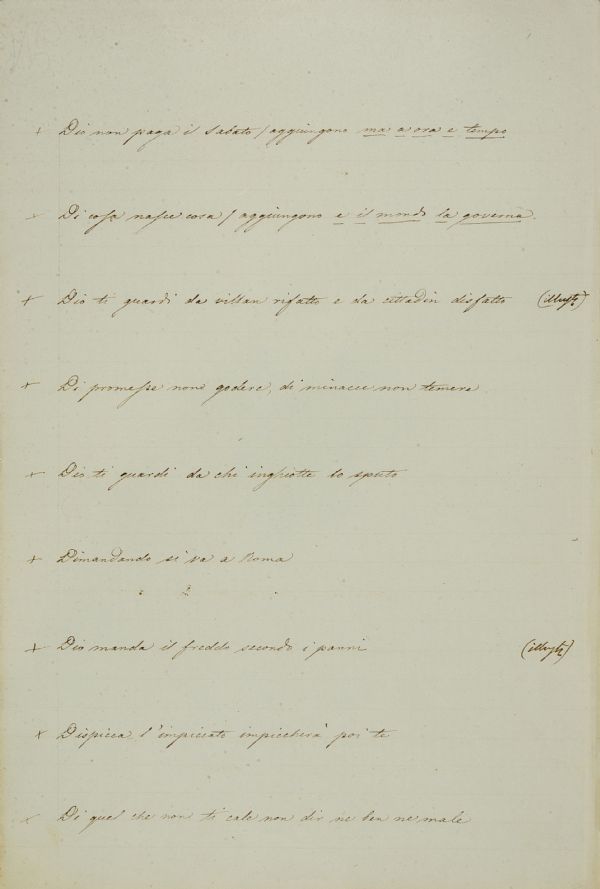 + Dio non paga il Sabato / aggiungono ma a ora e tempo
+ Di cosa nasce cosa / aggiungono e il mondo la governa.
+ Dio ti guardi da villan rifatto e da cittadin disfatto
+ Di promesse non godere, di minacce non temere
+ Dio ti guardi da chi inghiotte lo sputo
+ Dimandando si va a Roma
+ Dio manda il freddo secondo i panni
+ Dispicca l'impiccato impiccherà poi te
+ Di quel che non ti cale non dir ne ben ne male